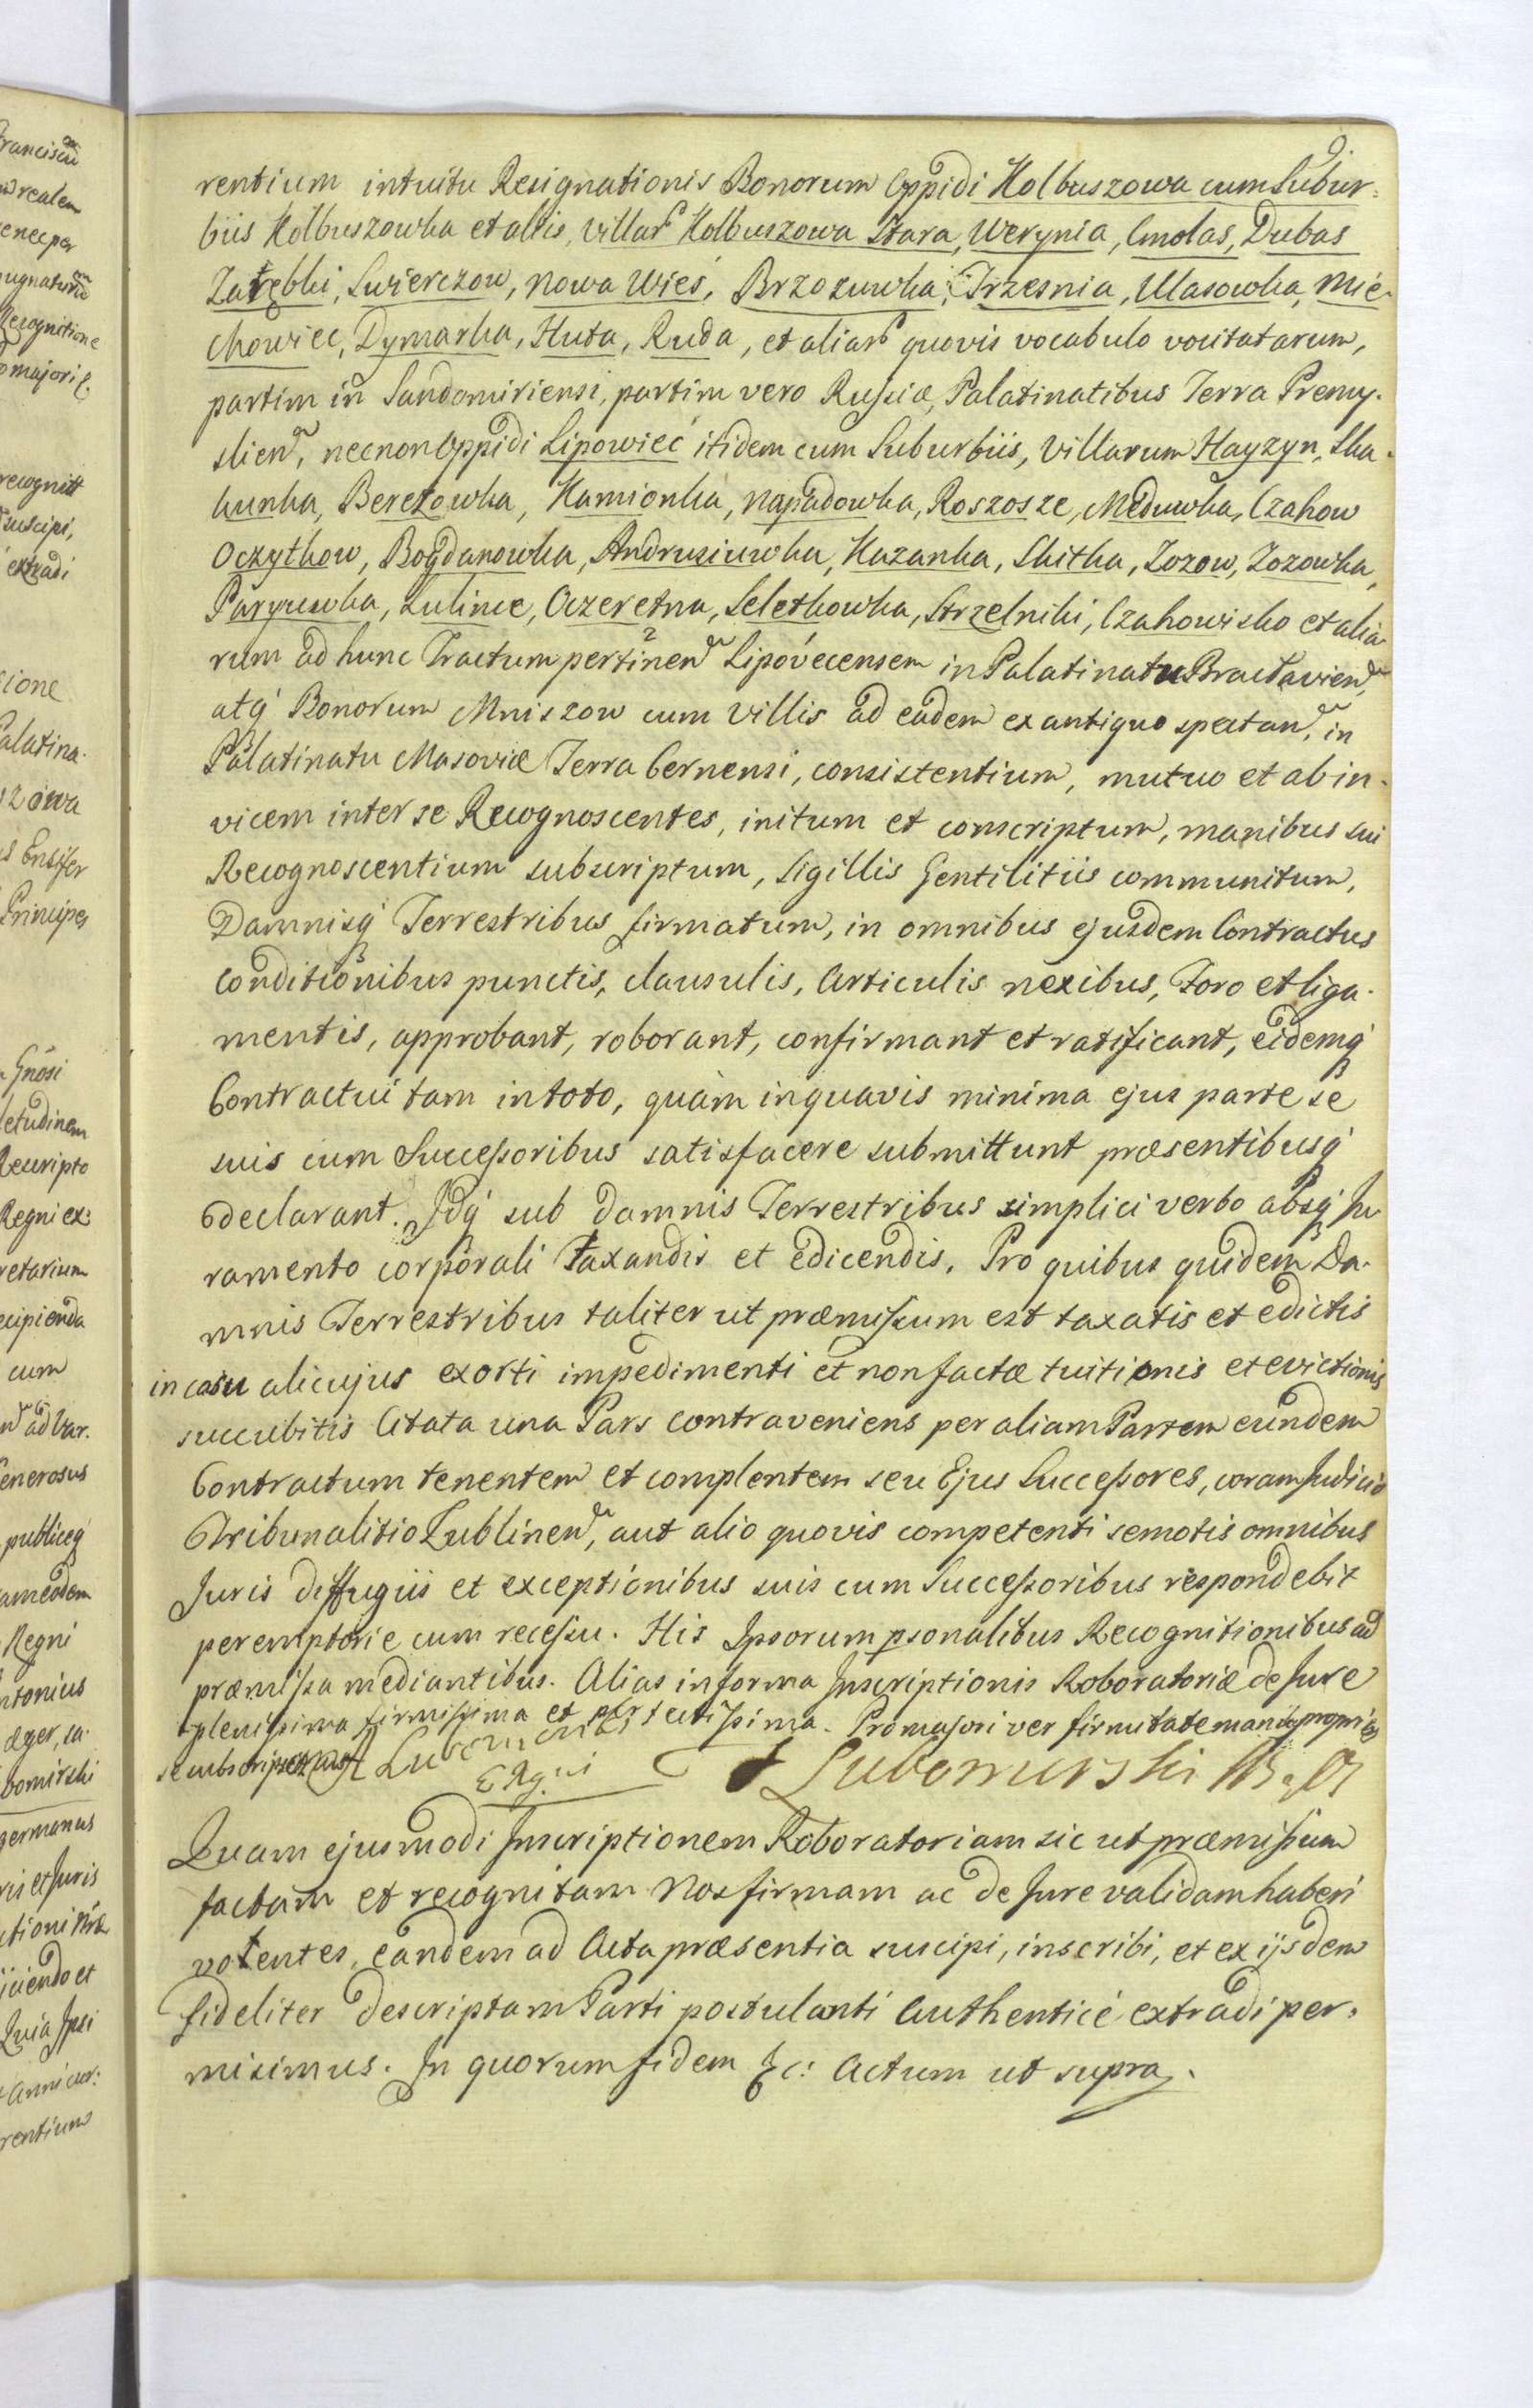 9.
rentium intuitu Resignationis Bonorum Oppidi Kolbuszowa cum Subur=
biis Kolbuszowka et aliis, Villar Kolbuszowa Stara, Werynia, Cmolas, Dubas
Zarębki, Swierczow, Nowa Wieś, Brzozuwka, Trzesnia, Ulasowka, Mie-
chowiec, Dymarka, Huta, Ruda, et aliar quovis vocabulo vocitatarum,
partim in Sandomiriensi, partim vero Russiæ, Palatinatibus Terra Premy-
slien, necnon Oppidi Lipowiec itidem cum Suburbiis, Villarum Hayzyn, Ska-
kunka, Berezowka, Kamionka, Napadowka, Roszosze, Meduwka, Czahow
Oczytkow, Bogdanowka, Andrusiuwka, Kazanka, Skitka, Zozow, Zozowka,
Paryewka, Lulince, Oczeretna, Seletkowka, Strzelniki, Czahowisko et alia-
rum ad hunc Tractum pertinen Lipovecensem in Palatinatu Braclavien,
atq Bonorum Mniszow cum Villis ad eadem ex antiquo spectan, in
Palatinatu Masoviæ Terra Cernensi, consistentium, mutuo et ab in-
vicem inter se Recognoscentes, initum et conscriptum, manibus sui
Recognoscentium subscriptum, Sigillis Gentilitiis communitum,
Damnisq Terrestribus firmatum, in omnibus ejusdem Contractus
conditionibus punctis, clausulis, Articulis nexibus, Foro et liga-
mentis, approbant, roborant, confirmant et ratificant, eidemq
Contractui tam in toto, quàm in quavis minima ejus parte se
suis cum Successoribus satisfacere submittunt præsentibusq
declarant. Idq sub Damnis Terrestribus simplici verbo absq Ju
ramento corporali taxandis et edicendis. Pro quibus quidem Da-
mnis Terrestribus taliter ut præmissum est taxatis et edictis
in casu alicujus exorti impedimenti et non factæ tuitionis et evictionis
succubitis Citata una Pars contraveniens per aliam Partem eundem
Contractum tenentem et complentem seu Ejus Successores, coram Judicio
Tribunalitio Lublinen, aut alio quovis competenti semotis omnibus
Juris diffugiis et exceptionibus suis cum Successoribus respondebit
peremptorie cum recessu. His Ipsorum psonalibus Recognitionibus ad
præmissa mediantibus. Alias in forma Inscriptionis Roboratoriæ de Jure
plenissima firmissima et perfectissima. Pro majori ver firmitate manu propria
se subscripserunt A Lubomirski
ERgni
Lubomirski
Quam ejusmodi Inscriptionem Roboratoriam sic ut præmissum
factam et recognitam Nos firmam ac de Jure validam haberi
volentes, eandem ad Acta præsentia suscipi, inscribi, et ex ijsdem
fideliter descriptam Parti postulanti Authenticè extradi per-
misimus. In quorum fidem &c: Actum ut supra.